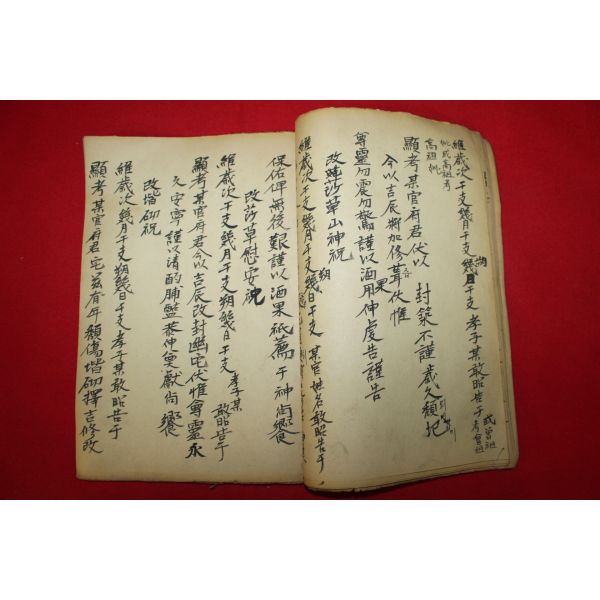 維歲次干支幾月干支朔幾日干支孝子某敢昭告于 或曾祖考曾祖
妣或高祖考
高祖妣
顯考某官府君伏以 封築不謹歲久頹圮
今以吉辰將加修葺伏惟
尊靈勿震勿驚謹以酒果用伸虔告謹告
改莎草山神祝
維歲次干支幾月干支朔幾日干支某官姓名敢昭告于
保佑俾無後艱謹以酒果祗薦于神尙饗
改莎草慰安祝
維歲次干支幾月干支朔幾日干支孝子某敢昭告于
顯考某官府君今以吉辰改封幽宅伏惟尊靈永
久安寧謹以清酌脯醢恭伸奠獻尙饗
改階砌祝
維歲次幾月干支朔幾日干支孝子某敢昭告于
顯考某官府君宅玆有年頹傷堦砌擇吉修改